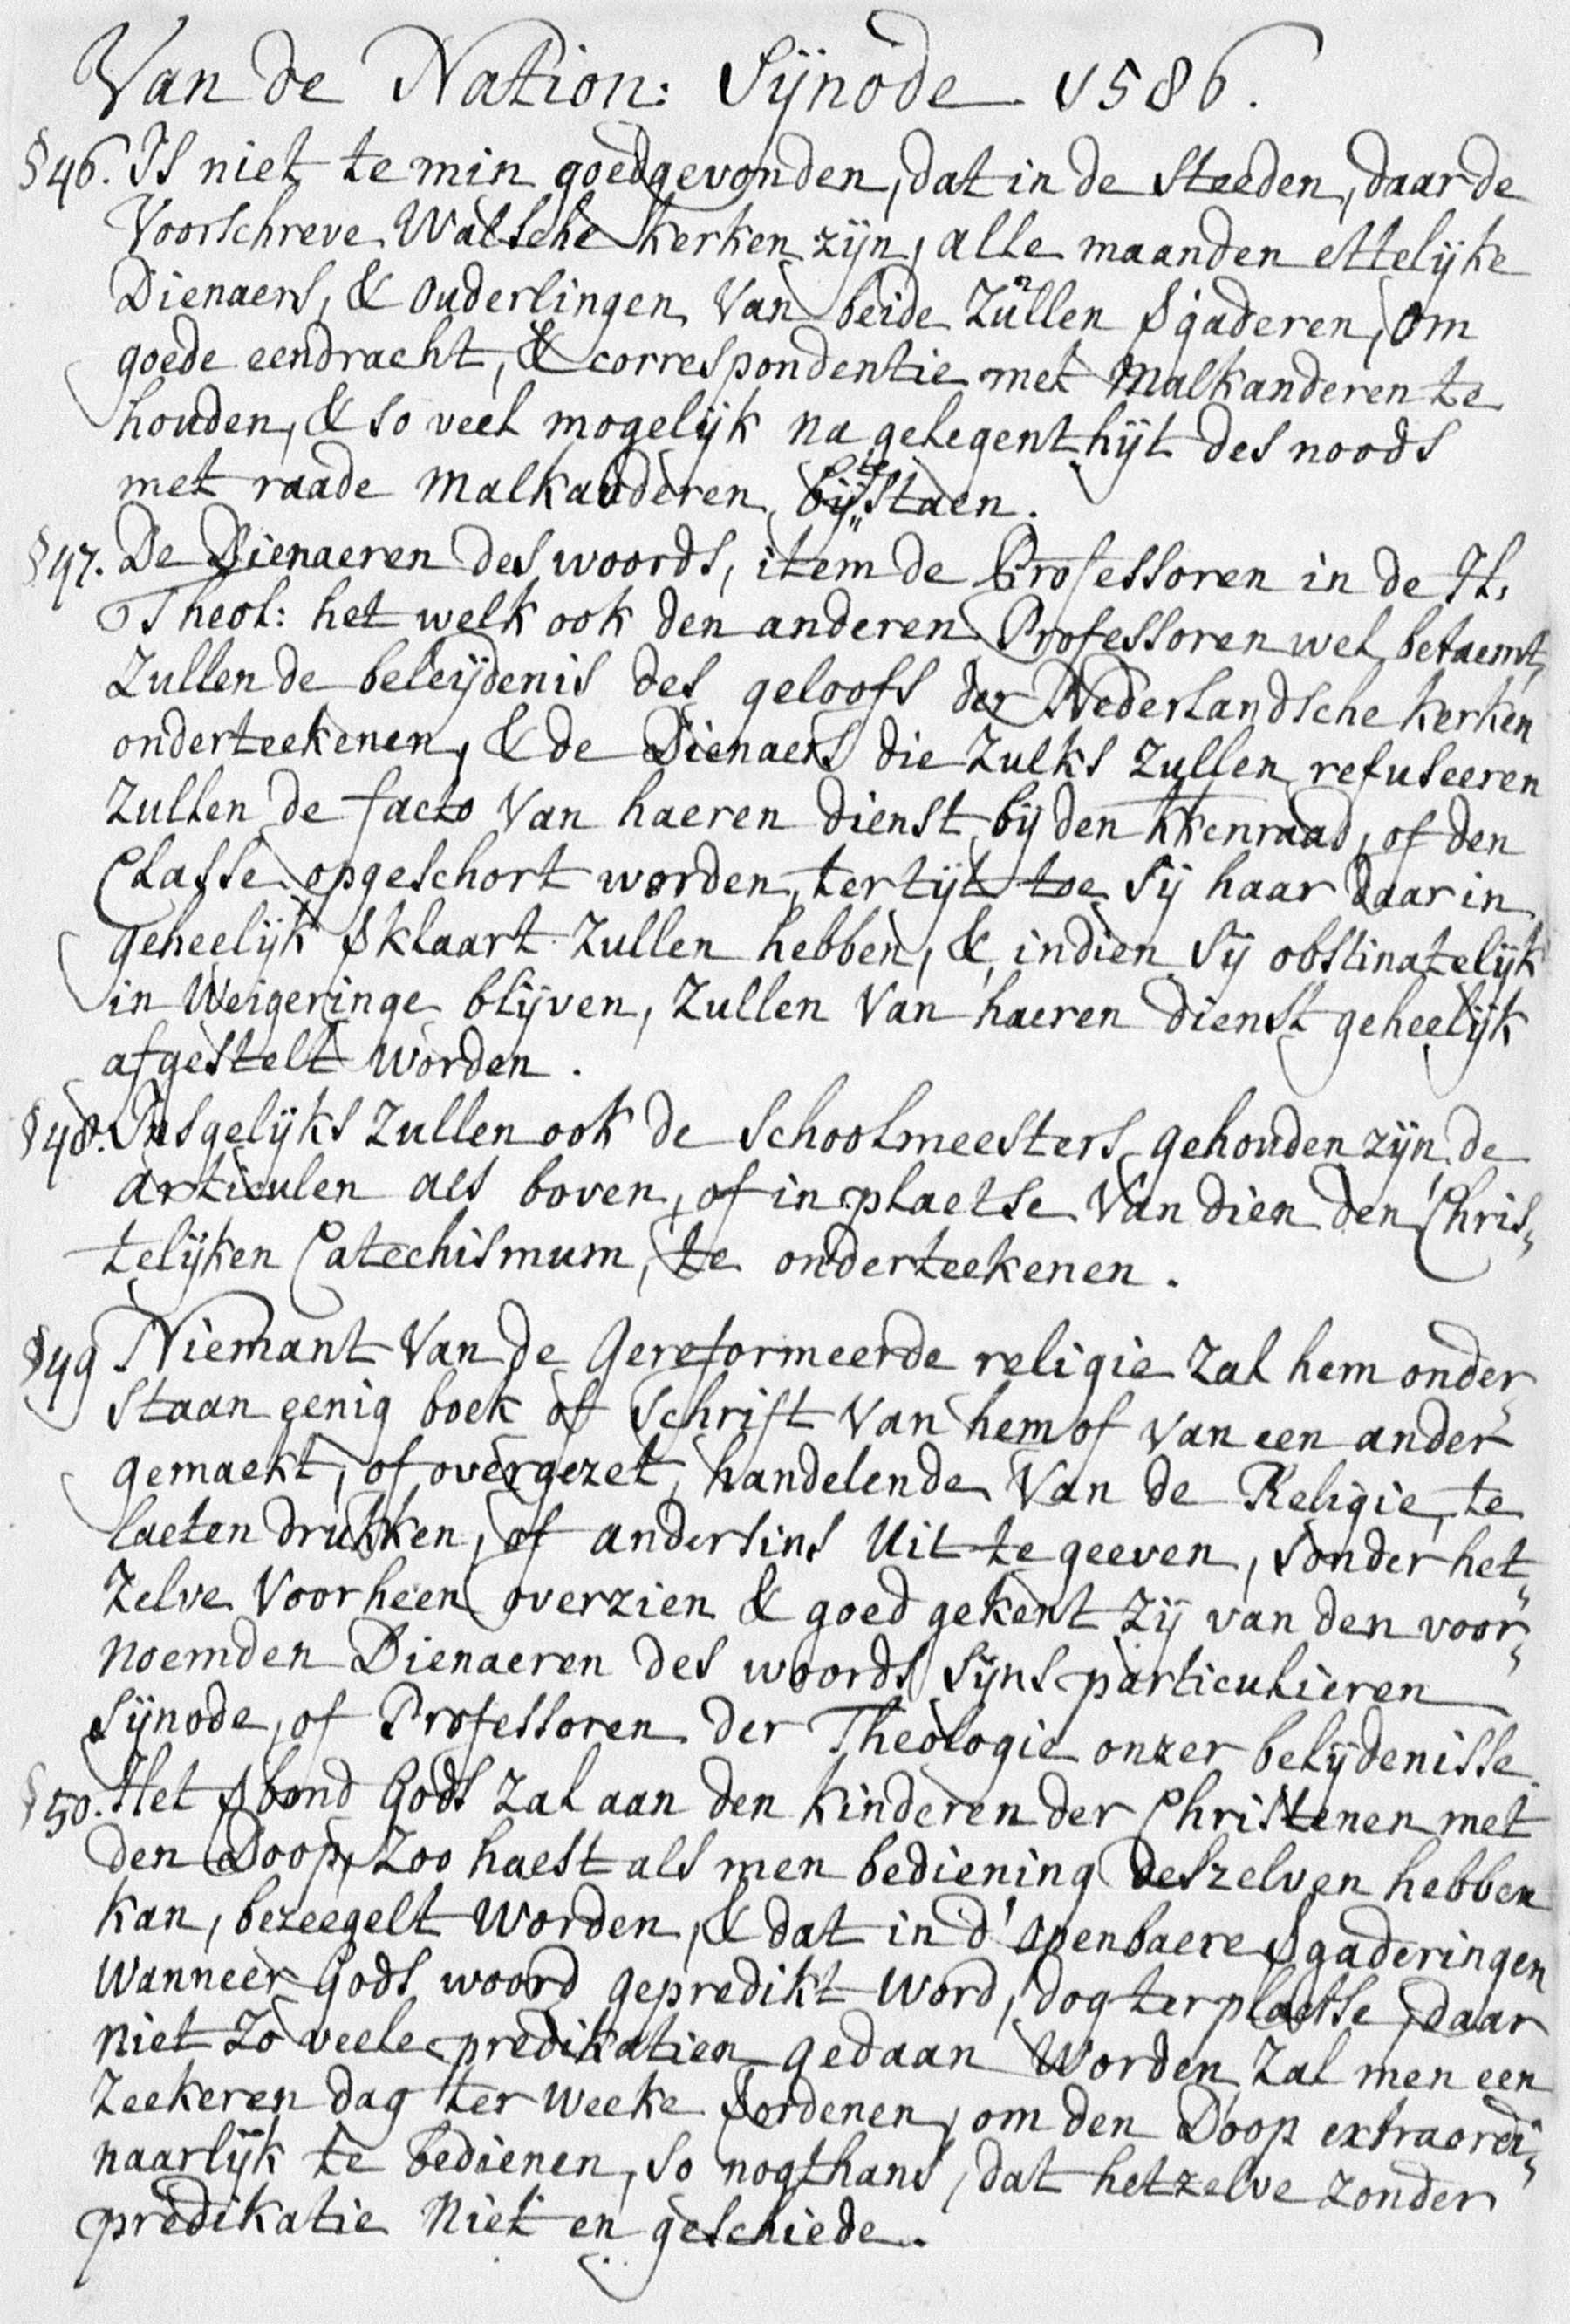 Van de Nation: Sÿnode 1586.
§46. Is niet te min goedgevonden, dat in de steeden, daar de
Voorschreve Walsche kerken zÿn, alle maanden ettelÿke
Dienaers, & ouderlingen Van beide Zullen Ṡgaderen, om
goede eendracht, & correspondentie met malkanderen te
houden, & so veel mogelÿk na gelegenthÿt des noods
met raade malkanderen bÿ te staen.
§47. De Dienaeren des woords, item de Professoren in de H.
Theol: het welk ook den anderen Professoren wel betaemt,
Zullen de beleÿdenis des geloofs der Nederlandsche kerken
onderteekenen, & de Dienaers die Zulks Zullen refuseeren
Zullen de facto Van haeren dienst bÿ den kkenraad, of den
Classe opgeschort worden, ter tÿt toe sÿ haar daar in
geheelÿk Sklaart Zullen hebben, & indien sÿ obstinatelÿk
in Weigeringe blÿven, Zullen Van haeren dienst geheelÿk
afgestelt worden.
§48. Insgelÿks Zullen ook de schoolmeesters gehouden zÿn de
articulen als boven, of in plaetse Van dien den Chris„
telÿken Catechismum, te onderteekenen.
§49 Niemant Van de Gereformeerde religie Zal hem onder„
staan eenig boek of schrift Van hem of van een ander
gemaekt, of overgezet, handelende Van de Religie, te
laeten drukken, of andersins Uit te geeven, sonder het„
Zelve Voorheen overzien & goed gekent Zÿ van den voor„
noemden Dienaeren des woords sÿns particulieren
Sÿnode, of Professoren der Theologie onzer belÿdenisse.
§50. Het Sbond Gods Zal aan den kinderen der Christenen met
den Doop, Zoo haest als men bediening deszelven hebben
kan, bezeegelt worden, & dat in d'openbaere Sgaderingen
Wanneer Gods woord gepredikt word, dog ter plaetse, daar
niet Zo veele predikatien gedaan Worden Zal men een
Zeekeren dag ter weeke Sordenen, om den Doop extraordi„
naarlÿk te bedienen, so nogthans, dat hetzelve zonder
predikatie niet en geschiede.